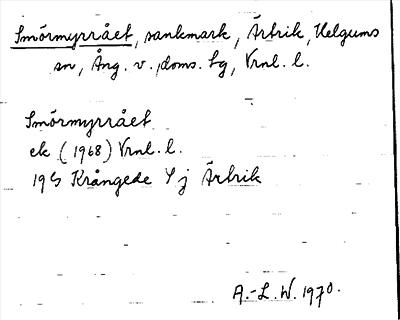 Smörmyrrået, sankmark, Ärtrik, Helgums
sn, Ång. v. doms. tg, Vrnl. l.
Smörmyrrået
ek (1968) Vrnl. l.
19G Krångede Sj Ärtrik
A.-L.W. 1970.